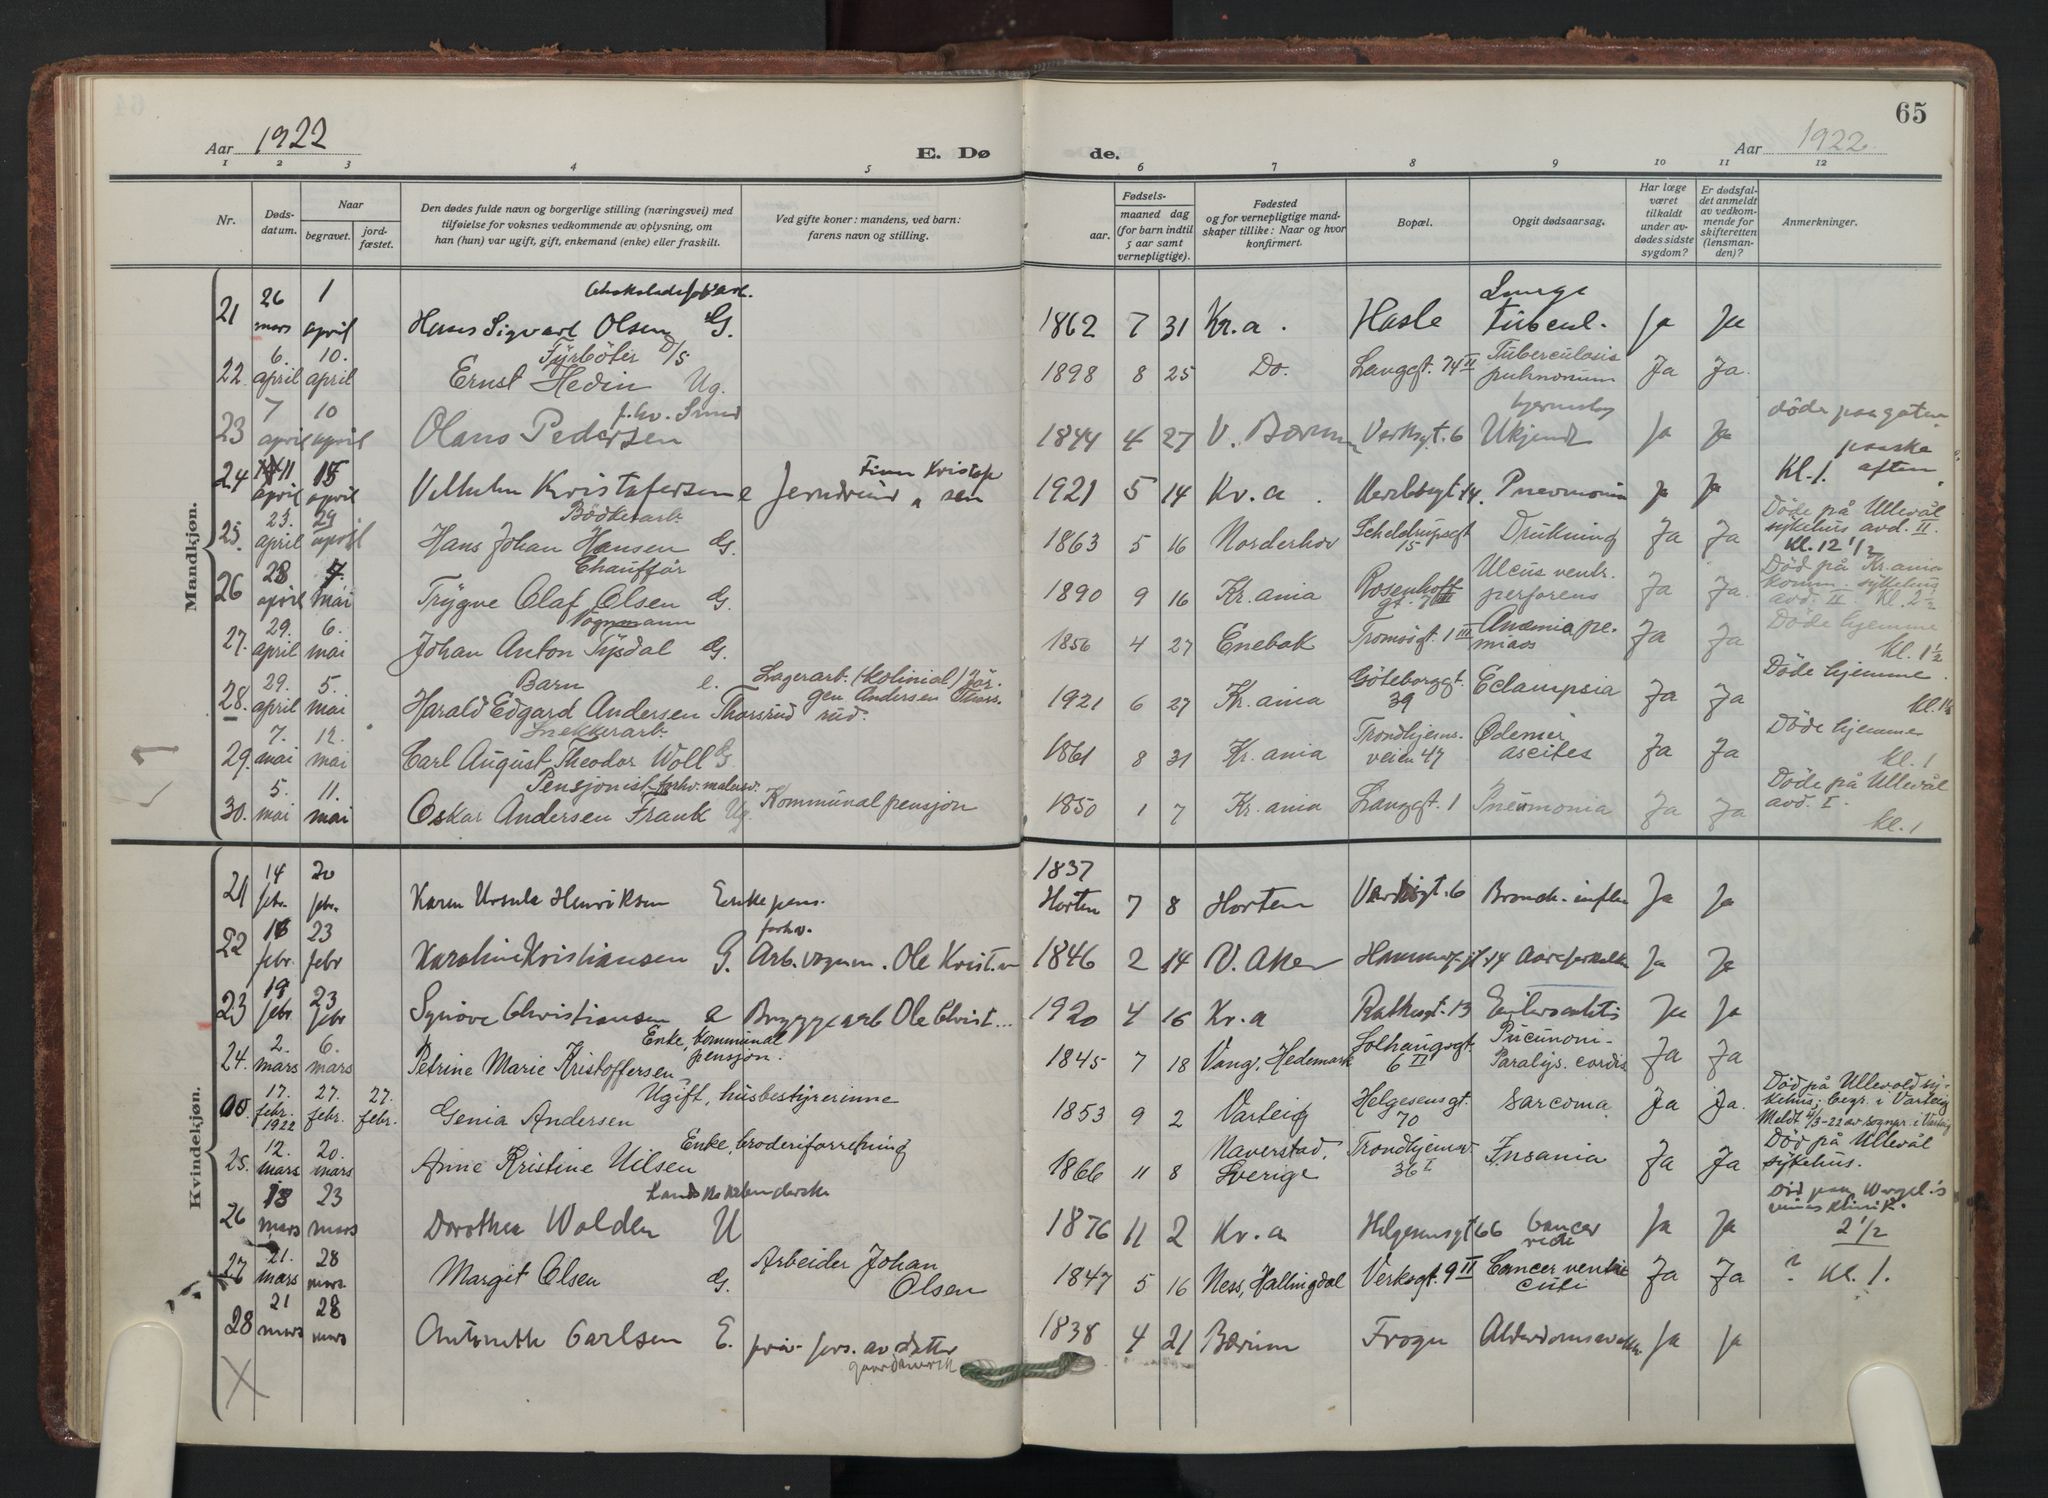 65
Aar 1922
E. Dø
de.
Aar 1922
1 2 3 4 5 6 7 8 9 10 11 12
Nr.
Døds-
datum.
Naar
begravet.
jord-
fæstet.
Den dødes fulde navn og borgerlige stilling (næringsvei) med
tilføielse for voksnes vedkommende av oplysning, om
han (hun) var ugift, gift, enkemand (enke) eller fraskilt.
Ved gifte koner: mandens, ved barn:
farens navn og stilling.
Fødsels-
aar.
maaned dag
(for barn indtil
5 aar samt
vernepligtige).
Fødested
og for vernepligtige mand-
skaper tillike: Naar og hvor
konfirmert.
Bopæl.
Opgit dødsaarsag.
Har læge
været
tilkaldt
under av-
dødes sidste
sygdom?
Er dødsfal-
det anmeldt
av vedkom-
mende for
skifteretten
(lensman-
den)?
Anmerkninger.
Mandkjøn.
21 26 mars 1 april Hans Sigvart Olsen G. 1862 7 31 Kr.a. Hasle Lunge Tubcul. Ja Ja
22. 6. april 10. april Fyrbøter D/S Ernst Hedin Ug. 1898 8 25 Do. Langgt. 74 II Tuberculosis pulmonum Ja Ja.
23 7 april 10 april Olaus Pedersen 1844 4 27 V. Bærum Verksgt. 6 Ukjendt Ja Ja døde paa gaten
24 11 april 15 april Vilhelm Kristofersen e Finn Kristofersen 1921 5 14 Kr.a. 14. Pnevmonia Ja Ja paaske aften Kl. 1.
25. 23. april 29 april Bødkerarb. Hans Johan Hansen G. 1863 5 16 Norderhov Scheldrupsgt 15 Drukning Ja Ja Døde på Ullevål sykehus avd. II. Kl. 12 1/2
26 28 april 7. mai Chauffør Trygve Olaf Olsen G. 1890 9 16 Kr.ania Rosenhoff gt. 7 III Ulcus ventr. perforens Ja Ja. Død på Kr.ania komm. sykehus avd. II Kl. 2 1/2
27. 29. april 6. mai Vognmann Johan Anton Tysdal G. 1856 4 27 Enebak Tromsøgt. 1 III Anæmia pe- Ja Ja Døde hjemme Kl. 1 1/2
28. 29. april 5. mai Barn e. Harald Edgard Andersen Thorsrud Lagerarb. (kolonial) Jør- gen Andersen Thors- rud. 1921 6 27 Kr.ania Göteborggt. 39 Eclampsia Ja Ja Døde hjemme. kl. 1 1/2
29. 7. mai 12. mai Snekkerarb. Carl August Theodor Woll G 1861 8 31 Kr.ania Trondhjems- veien 47 Ødemer ascites Ja Ja Døde hjemme kl. 1
30. 5. mai 11. mai Pensjonist forhv. malersv. Oskar Andersen Frank Ug. Kommunal pensjon 1850 1 7 Kr.ania Langgt. 1 Pneumonia Ja Ja Døde på Ullevål avd. I. kl. 1
Kvindekjøn.
21 14 febr. 20 febr. Karen Ursula Henriksen Enke pens. 1837 Horten 7 8 Horten 6 Bronch. influ Ja Ja
22 18 febr. 23 febr Karoline Kristiansen G. forhv. Arb. vognm. Ole Krist.n 1846 2 14 V. Aker 14 Aareforkalkn Ja Ja
23 19 febr 23 febr Synøve Christiansen a Bryggearb Ole Christ... 1920 4 16 Kr.a Rathkesgt. 13 Ja Ja
24. 2. mars 6. mars Enke, kommunal pensjon. Petrine Marie Kristoffersen 1845 7 18 Vang, Hedemark Solhaugsgt. 6 II Paralys. cordis Ja Ja
17. febr. 1922 27. febr. 27. febr. Ugift, husbestyrerinne Genia Andersen 1853 9 2 Varteig Helgesensgt. 70 Sarcoma Ja Ja. Død på Ullevold sy- kehus; begr. i Varteig Meldt 4/3-22 av sognpr. i Varteig
25. 12. mars 20. mars Enke, broderiforretning Anne Kristine Nilsen 1866 11 8 Naverstad, Sverige Trondhjemsv 36 I Insania Ja Ja Død på Ullevål sykehus.
26 18 mars 23 mars Dorothea Wolden U 1876 11 2 Kr.a Helgesensgt 66 Cancer Ja Ja Død paa klinik. 2 1/2
27 21. mars 28 mars Margit Olsen G. Arbeider Johan Olsen 1847 5 16 Ness, Hallingdal Verksgt. 9 II Cancer ventri culi Ja Ja ? Kl. 1.
28 21 mars 28 mars Antonette Carlsen E. priv. fors. av datter 1838 4 21 Bærum Frogn Ja Ja